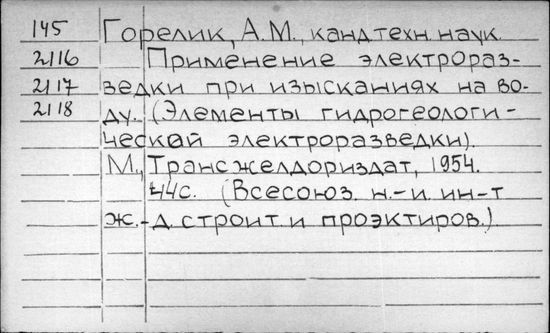 145 Горелик, А.М., канд.техн.наук.
2116 Применение электрораз-
2117 ведки при изысканиях на во-
2118 ду. (Элементы гидрогеологи-
ческой электроразведки).
М., Трансжелдориздат, 1954.
44с. (Всесоюз. н.-и. ин-т
ж.-д. строит. и проэктиров.)